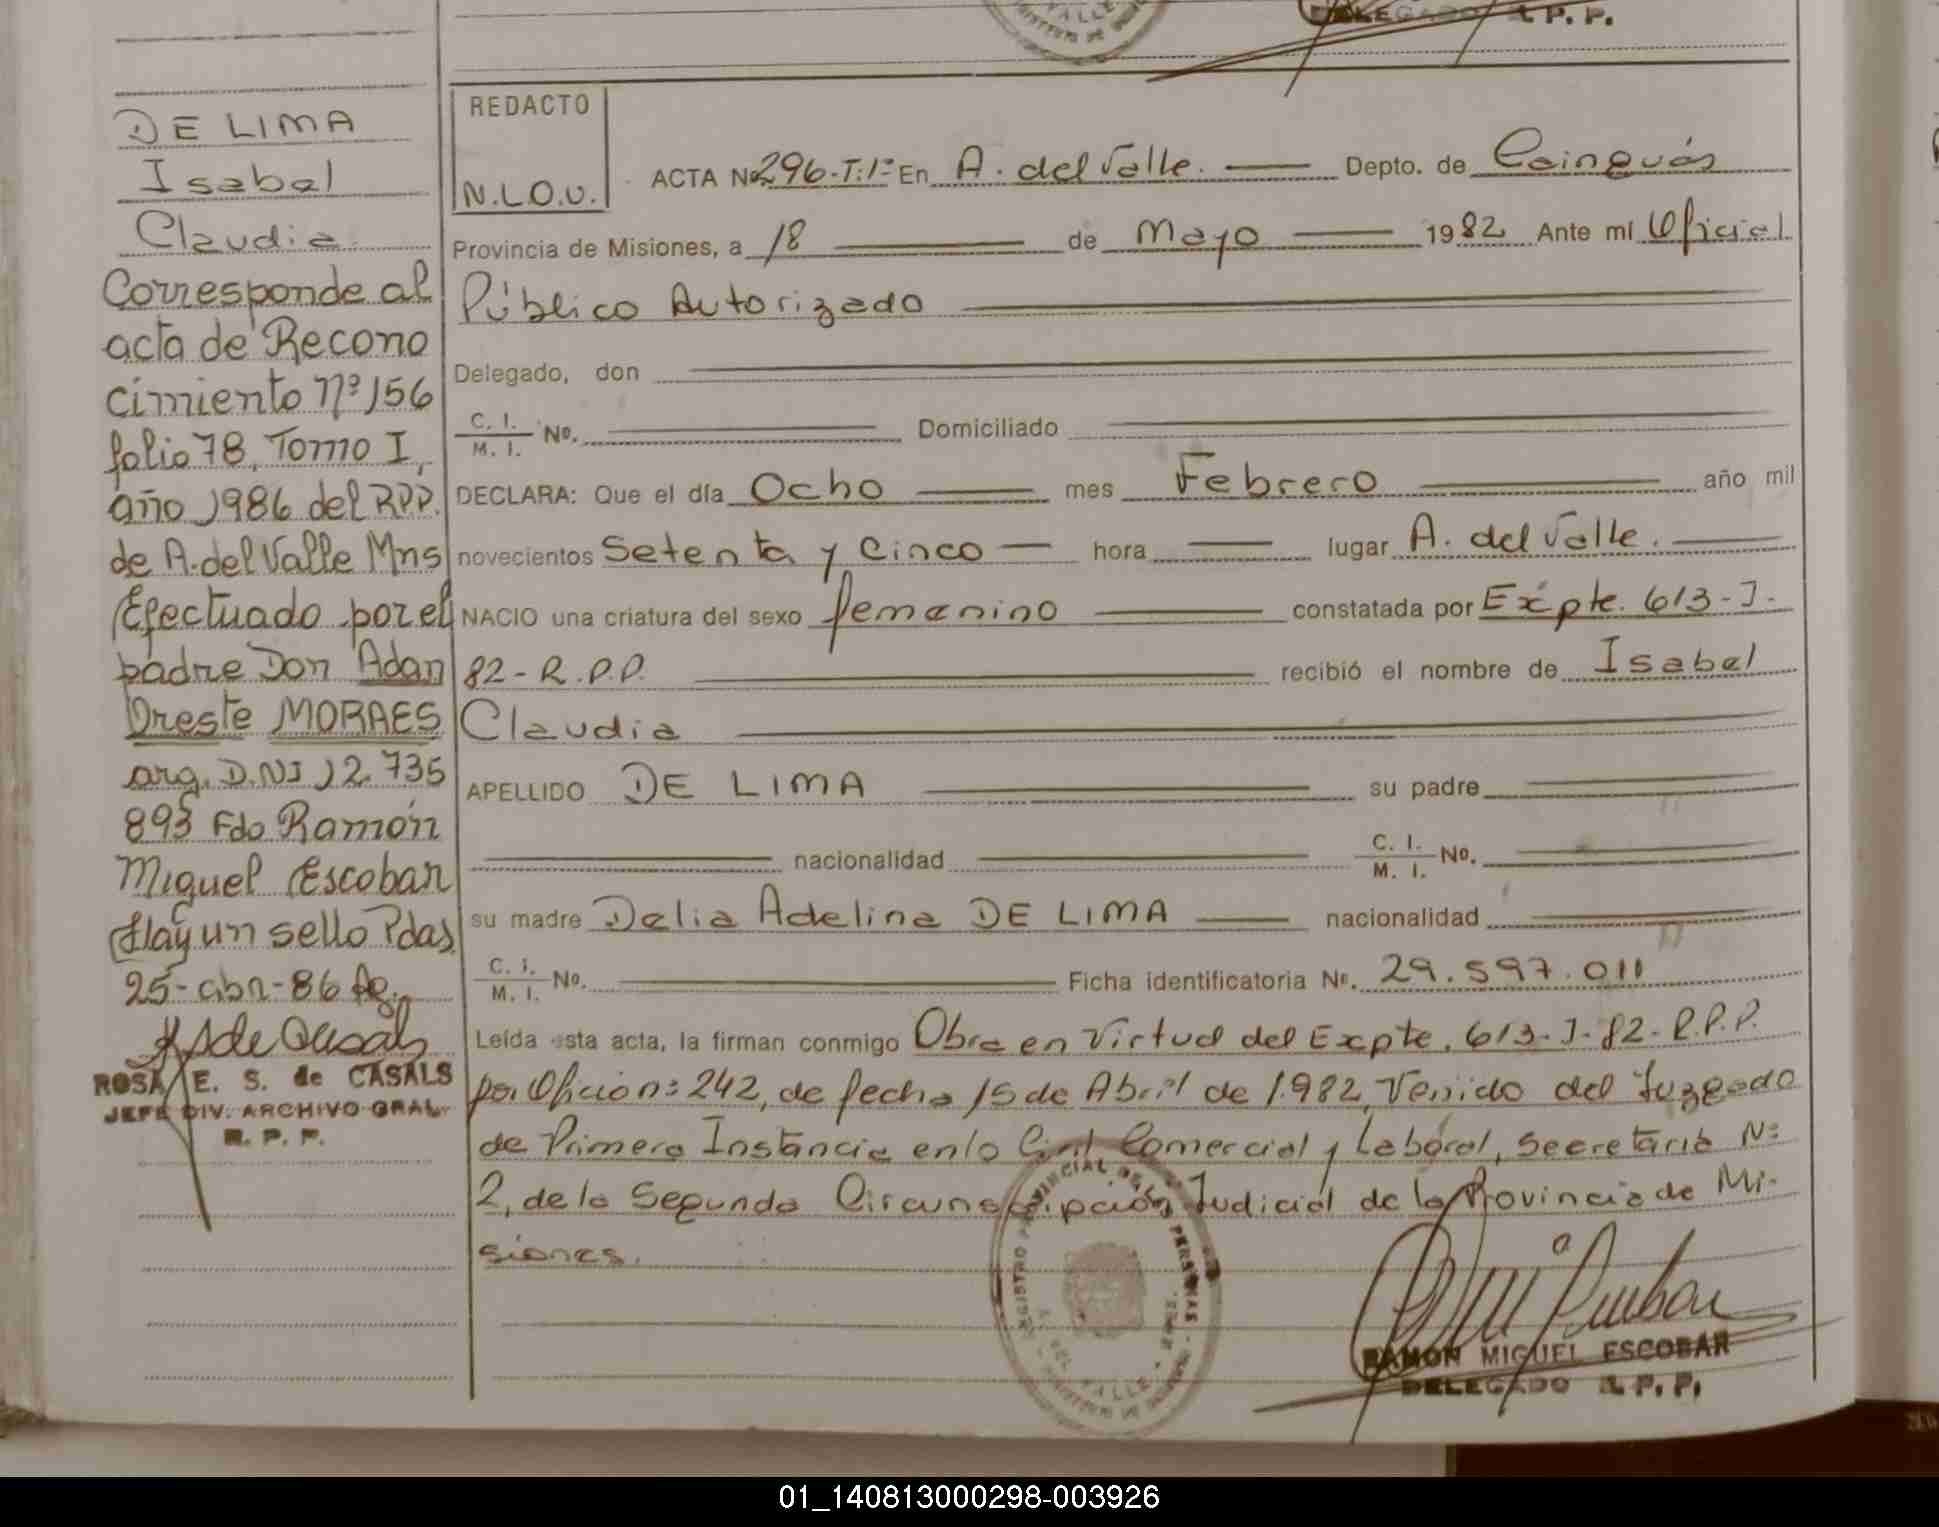 DELEGADO R. P. P.
DE LIMA
Isabel
Claudia
Corresponde al
acta de Recono
cimiento Nº 156
folio 78, Tomo I,
año 1986 del RPP.
de A. del Valle Mns
Efectuado por el
padre Don Adan
Oreste MORAES
arg. D.NI 12.735
893 Fdo Ramón
Miguel Escobar
Hay un sello Pdas
25-abr-86
ROSA E. S. de CASALS
JEFE DIV. ARCHIVO GRAL.
R. P. P.
REDACTO
N.L.O.U.
ACTA Nº 296-T:1º En A. del Valle. Depto. de Cainguás
Provincia de Misiones, a 18 de Mayo 1982 Ante mí Oficial
Público Autorizado
Delegado, don
C. I.
M. I. Nº. Domiciliado
DECLARA: Que el día Ocho mes Febrero año mil
novecientos Setenta y Cinco hora lugar A. del Valle.
NACIO una criatura del sexo femenino constatada por Expte. 613-J-
82-R.P.P. recibió el nombre de Isabel
Claudia
APELLIDO DE LIMA su padre
nacionalidad C. I.
M. I. Nº.
su madre Delia Adelina DE LIMA nacionalidad
C. I.
M. I. Nº. Ficha identificatoria Nº. 29.597.011
Leída esta acta, la firman conmigo Obra en Virtud del Expte. 613-J-82-R.P.P.
por Oficio n: 242, de fecha 15 de Abril de 1.982, Venido del Juzgado
de Primera Instancia en lo Civil Comercial y Laboral, Secretaría Nº
2, de la Segunda Circunscripción Judicial de la Provincia de Mi-
siones.
REGISTRO PROVINCIAL DE LAS PERSONAS
A. DEL VALLE
RAMON MIGUEL ESCOBAR
DELEGADO R. P. P.
01_140813000298-003926